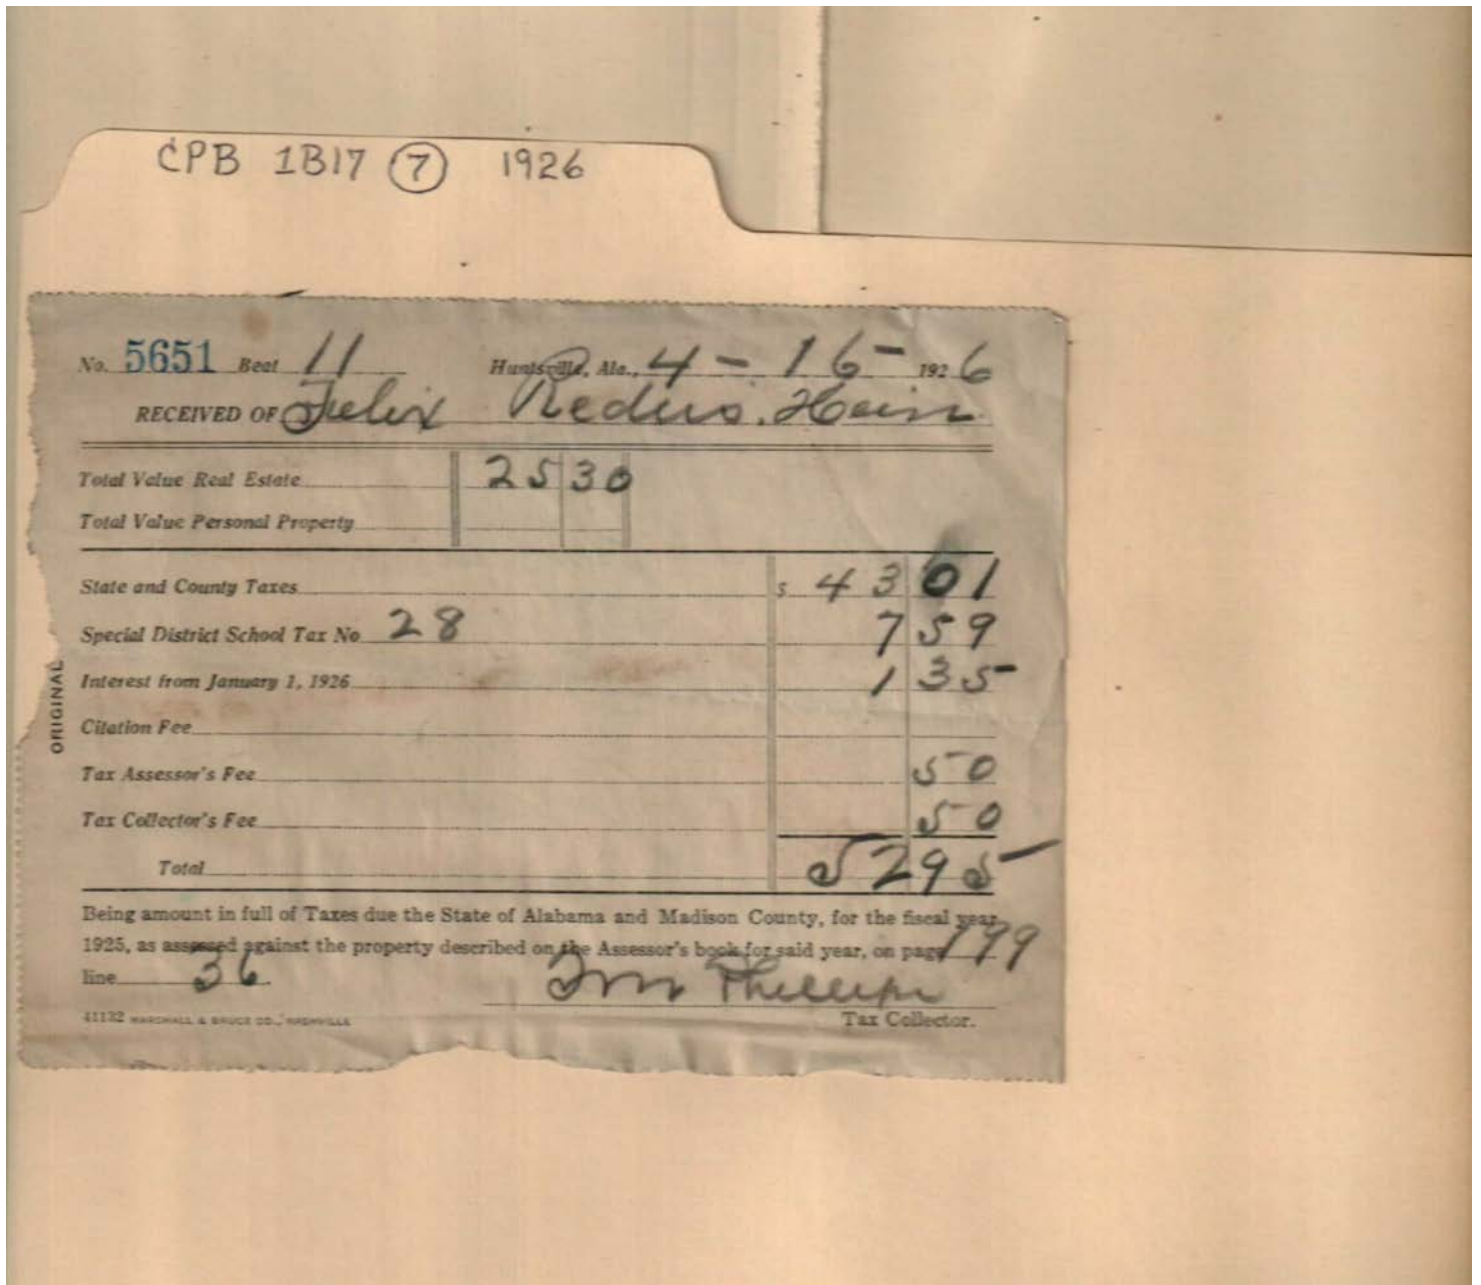 CPB 1B17 7 1926
No. 5651 Beat 11 Huntsville, Ala., 4 - 16 - 1926
RECEIVED OF Felix Redus. Heir
Total Value Real Estate 25 30
Total Value Personal Property
State and County Taxes $ 43 01
Special District School Tax No 28 7 59
Interest from January 1, 1926 1 35
Citation Fee
Tax Assessor's Fee 50
Tax Collector's Fee 50
Total 52 95
ORIGINAL
Being amount in full of Taxes due the State of Alabama and Madison County, for the fiscal year
1925, as assessed against the property described on the Assessor's book for said year, on page
line 36.
Tax Collector.
41132 MARSHALL & BRUCE CO., NASHVILLE